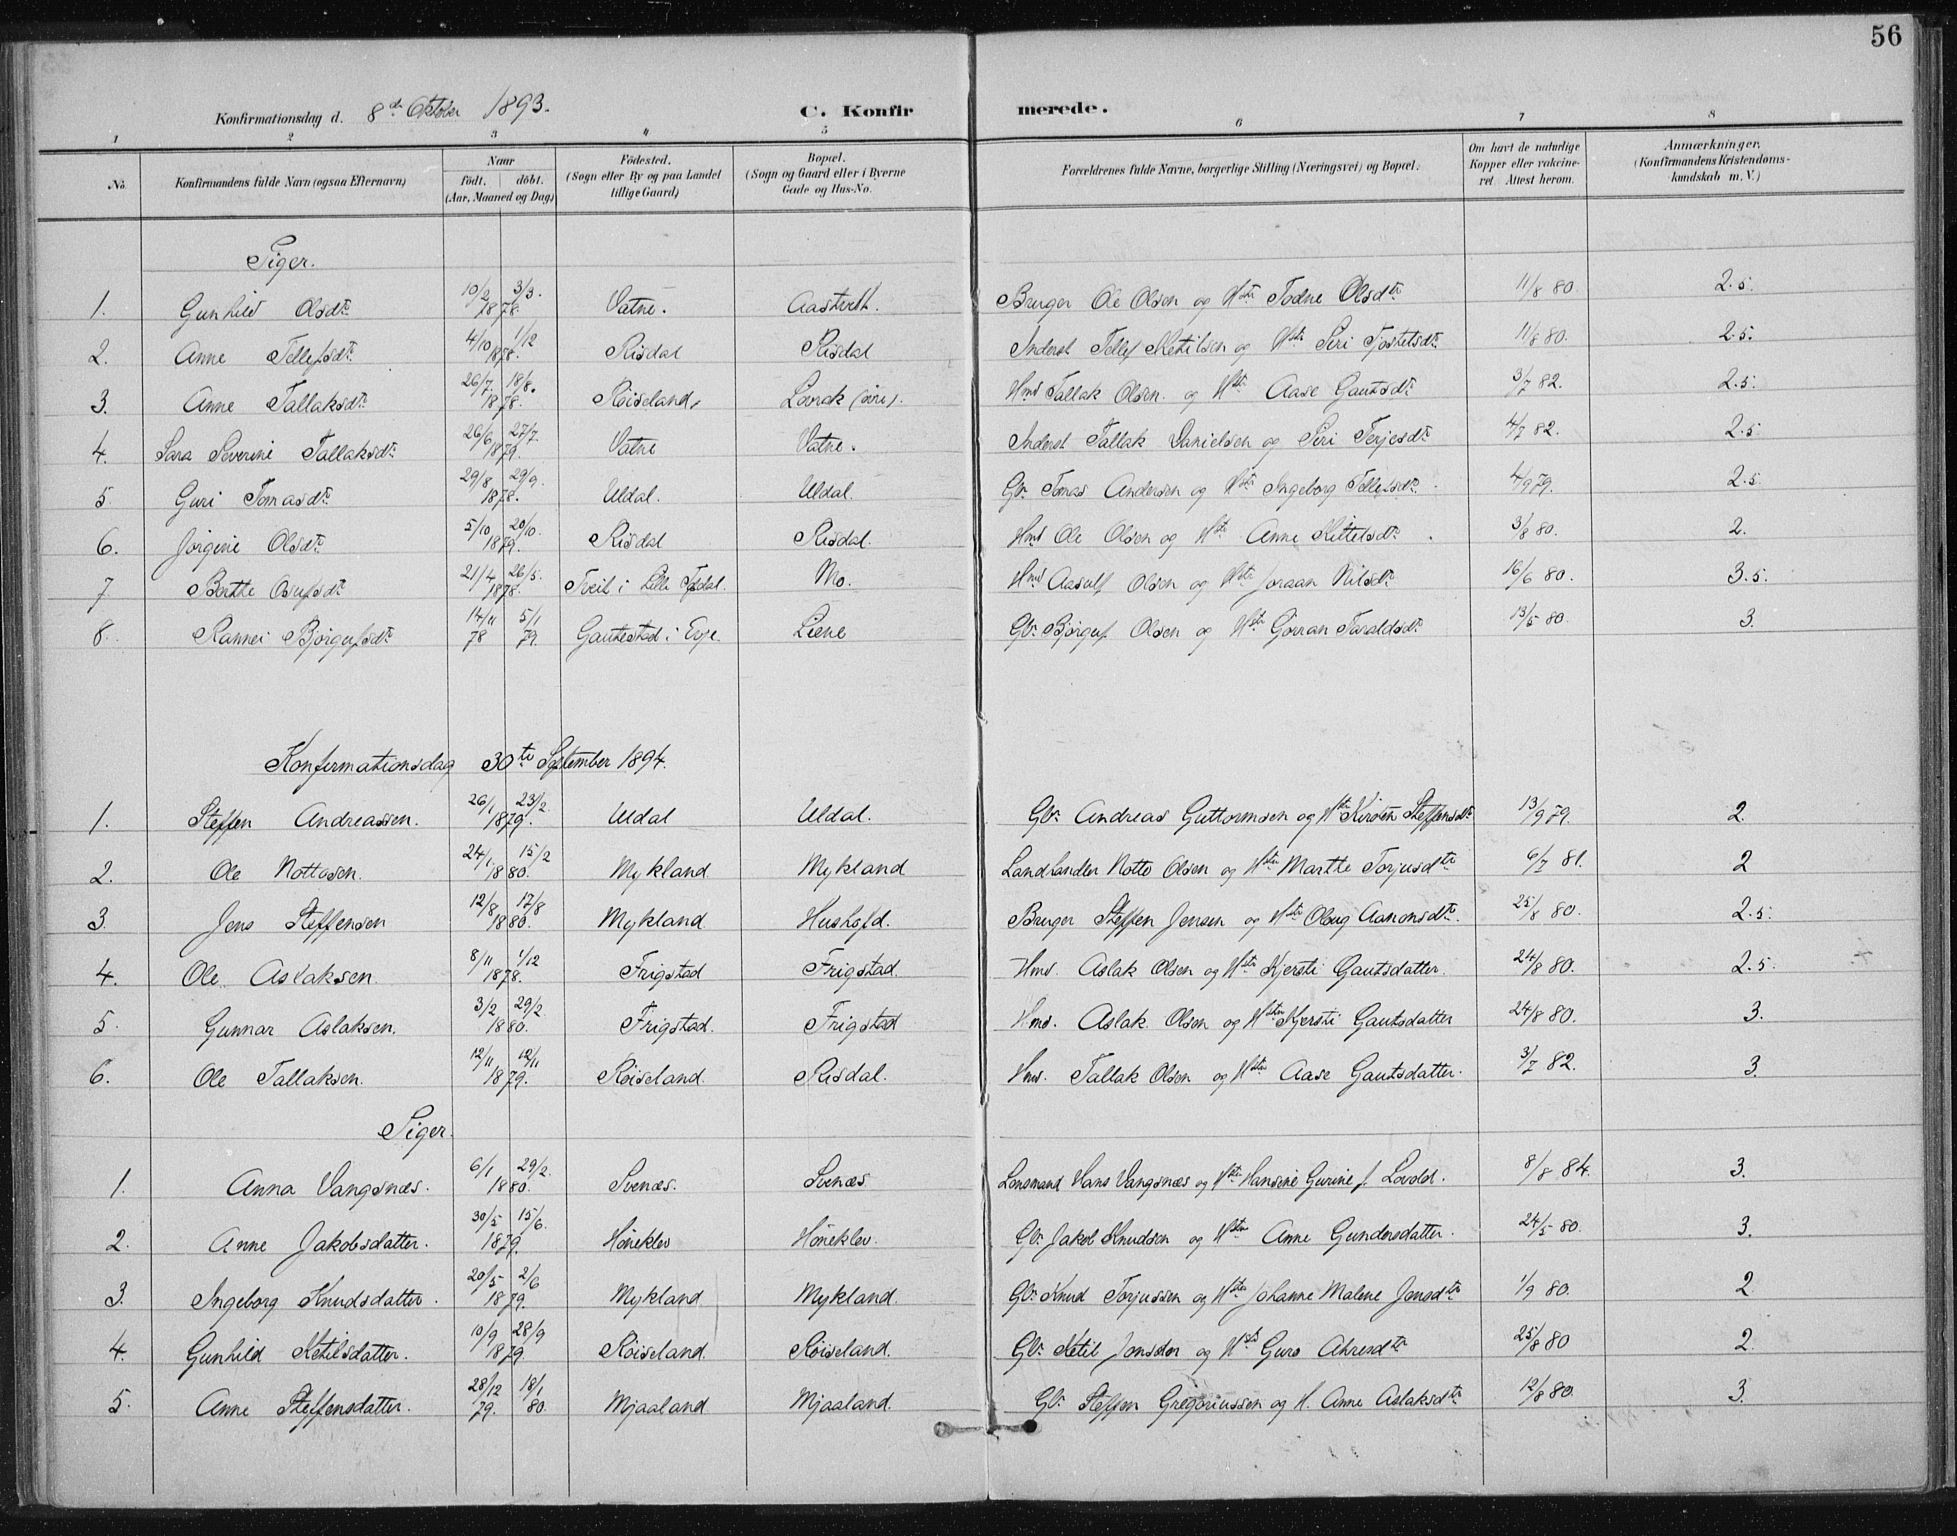 56
Konfirmationsdag d. 8de Oktober 1893.
C. Konfirmerede.
1 2 3 4 5 6 7 8
No. | Konfirmandens fulde Navn (ogsaa Efternavn) | Naar født. døbt. (Aar, Maaned og Dag) | Födested. (Sogn eller By og paa Landet tillige Gaard) | Bopæl. (Sogn og Gaard eller i Byerne Gade og Hus-No. | Forældrenes fulde Navne, borgerlige Stilling (Næringsvei) og Bopæl. | Om havt de naturlige Kopper eller vakcineret. Attest herom. | Anmærkninger, (Konfirmandens Kristendomskundskab m. V.)
Piger.
1. Gunhild Olsdtr 10/2 3/3. 1878. Vatne. Aastveth. Bruger Ole Olsen og Hstr Todne Olsdtr 11/8 80. 2.5.
2. Anne Tellefsdtr 4/10 1/12 1878. Risdal Risdal Inderst Tellef Ketilsen og Hstr Siri Tostelsdtr 11/8 80. 2.5.
3. Anne Tallaksdtr 26/7. 18/8. 1878. Røiseland, Hmd Tallak Olsen og Hstr Aase Gautsdtr 3/7 82. 2.5.
4. Sara Severine Tallaksdtr 26/6 27/7. 1879. Vatne Vatne. Inderst Tallak Danielsen og Siri Terjesdtr 4/7 82. 2.5
5 Guri Tomasdtr 29/8 29/9. 1878. Uldal. Uldal. Gbr Tomas Andersen og Hstr Ingeborg Tellefsdtr. 4/9 79. 2.5
6. Jørgine Olsdtr 5/10 20/10. 1879. Risdal Risdal. Hmd Ole Olsen og Hstr Anne Kittelsdtr. 3/8 80. 2.
7 Berthe Osufsdtr 21/4 26/5. 1878. Tveit i Lille Topdal. Mo. Hmd Aasulf Olsen og Hstr Joraan Nilsdtr 16/6 80. 3.5.
8. Rannei Bjørgufsdtr 14/11 78 5/1 79. Gautestad i Evje Liene Gbr Bjørguf Olsen og Hstr Gørran Taraldsdtr 13/5 80. 3.
Konfirmationsdag 30te September 1894.
1. Steffen Andreassen. 26/1 23/2. 1879. Uldal Uldal. Gbr Andreas Guttormsen og Hstr Kirsten Steffensdtr 13/9 79. 2.
2. Ole Nottosen. 24/1. 15/2 1880. Mykland Mykland Landhandler Notto Olsen og Hstr Marthe Torjusdtr 6/7 81. 2
3. Jens Steffensen 12/8 17/8 1880. Mykland Hushofd. Bruger Steffen Jensen og Hstr Olaug Aanonsdtr. 25/8 80. 2.5.
4. Ole Aslaksen. 8/11 1/12 1878. Frigstad Frigstad. Hmd. Aslak Olsen og Hstr Kjersti Gautsdatter. 24/8 80. 2.5.
5. Gunnar Aslaksen. 3/2 29/2. 1880. Frigstad. Frigstad Hmd. Aslak Olsen og Hstr Kjersti Gautsdatter 24/8 80. 3.
6. Ole Tallaksen. 12/11 12/11 1879. Røiseland. Risdal. Hmd. Tallak Olsen og Hstr Aase Gautsdatter. 3/7 82. 3.
Piger.
1. Anna Vangsnæs. 6/1 29/2. 1880. Svenæs. Svenæs Lensmand Hans Vangsnæs og Hstr Hansine Gurine f. 8/8 84. 3.
2. Anne Jakobsdatter. 30/5 15/6. 1879. Høneklev Høneklev. Gbr Jakob Knudsen og Hstr Anne Gundersdatter. 24/5 80. 3.
3. Ingeborg Knudsdatter. 20/5 2/6 1879. Mykland. Mykland. Gbr Knud Torjussen og Hstr Johanne Malene Jensdtr 1/9 80. 2
4. Gunhild Ketilsdatter. 10/9 28/9 1879. Røiseland. Røiseland. Gbr Ketil Jensson og Hstr Guro 25/8 80 2.
5. Anne Steffensdatter. 28/12 79. 18/1 80. Mjaaland Mjaaland. Gbr Steffen Gregoriussen og H. Anne Aslaksdtr 12/8 80. 3.